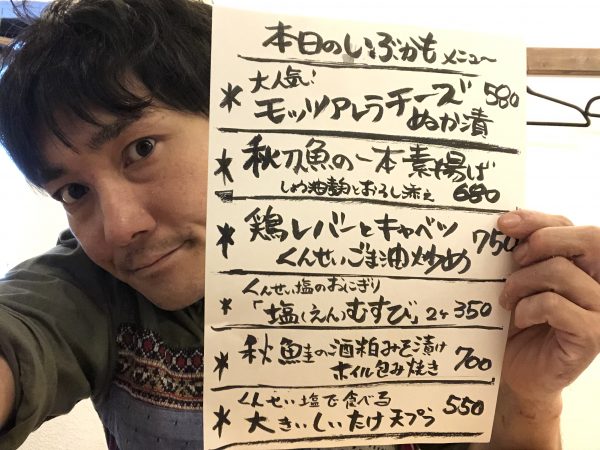 本日のしぶかもメニュー
大人気!
＊モッツアレラチーズ 580
ぬか漬
＊秋刀魚の一本素揚げ
しょう油麹とおろし添え 680
＊鶏レバーとキャベツ 750
くんせいごま油炒め
くんせい塩のおにぎり
＊「塩(えん)むすび」2ヶ 350
＊秋鮭の酒粕みそ漬け 700
ホイル包み焼き
くんせい塩で食べる 550
＊大きいしいたけ天プラ